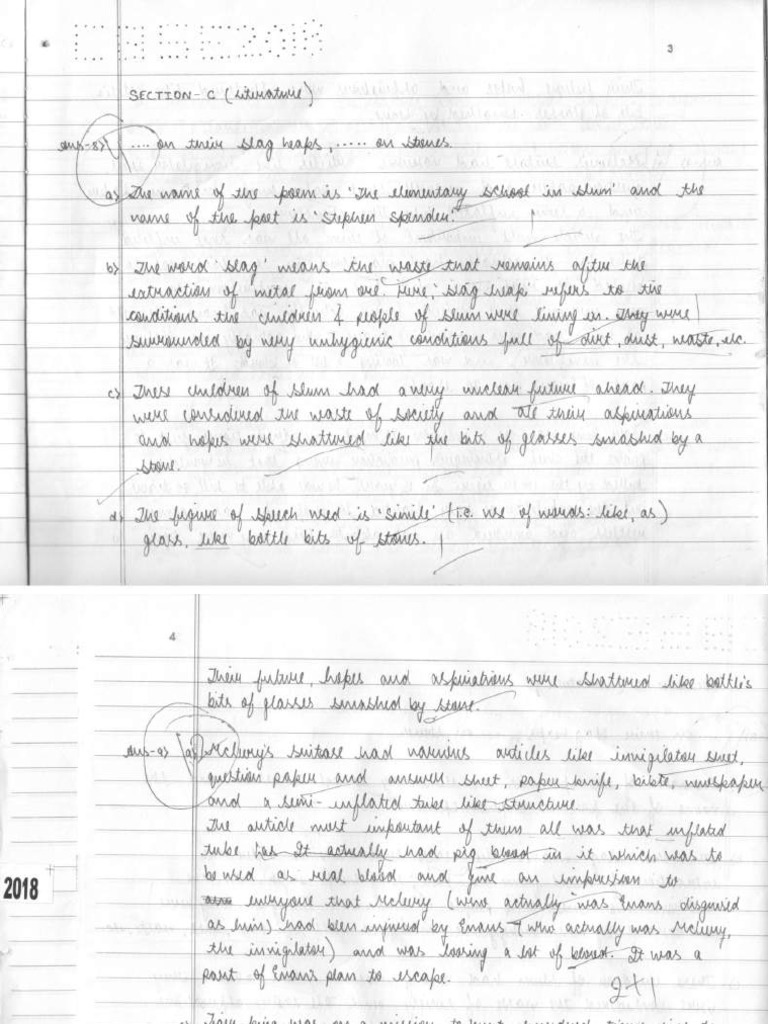 CBSE2018
3
SECTION-C (Literature)
ans-8) .... on their slag heaps, ..... on stones.
a) The name of the poem is 'The elementary school in slum' and the
name of the poet is 'Stephen Spender'.
b) The word 'slag' means the waste that remains after the
extraction of metal from ore. Here, 'slag heap' refers to the
conditions the children & people of slum were living in. They were
surrounded by very unhygienic conditions full of dirt, dust, waste, etc.
c) These children of slum had a very unclear future ahead. They
were considered the waste of society and all their aspirations
and hopes were shattered like the bits of glasses smashed by a
stone.
d) The figure of speech used is 'Simile' (i.e. use of words: like, as)
glass, like bottle bits of stones.
4
Their future, hopes and aspirations were shattered like bottle's
bits of glasses smashed by stone.
ans-9) a) McLeery's suitcase had various articles like invigilator sheet,
question paper and answer sheet, paper knife, bible, newspaper
and a semi-inflated tube like structure.
The article most important of them all was that inflated
tube It actually had pig blood in it which was to
be used as real blood and give an impression to
everyone that McLeery (who actually was Evans disguised
as him) had been injured by Evans (who actually was McLeery,
the invigilator) and was loosing a lot of blood. It was a
part of Evan's plan to escape.
2+1
2018